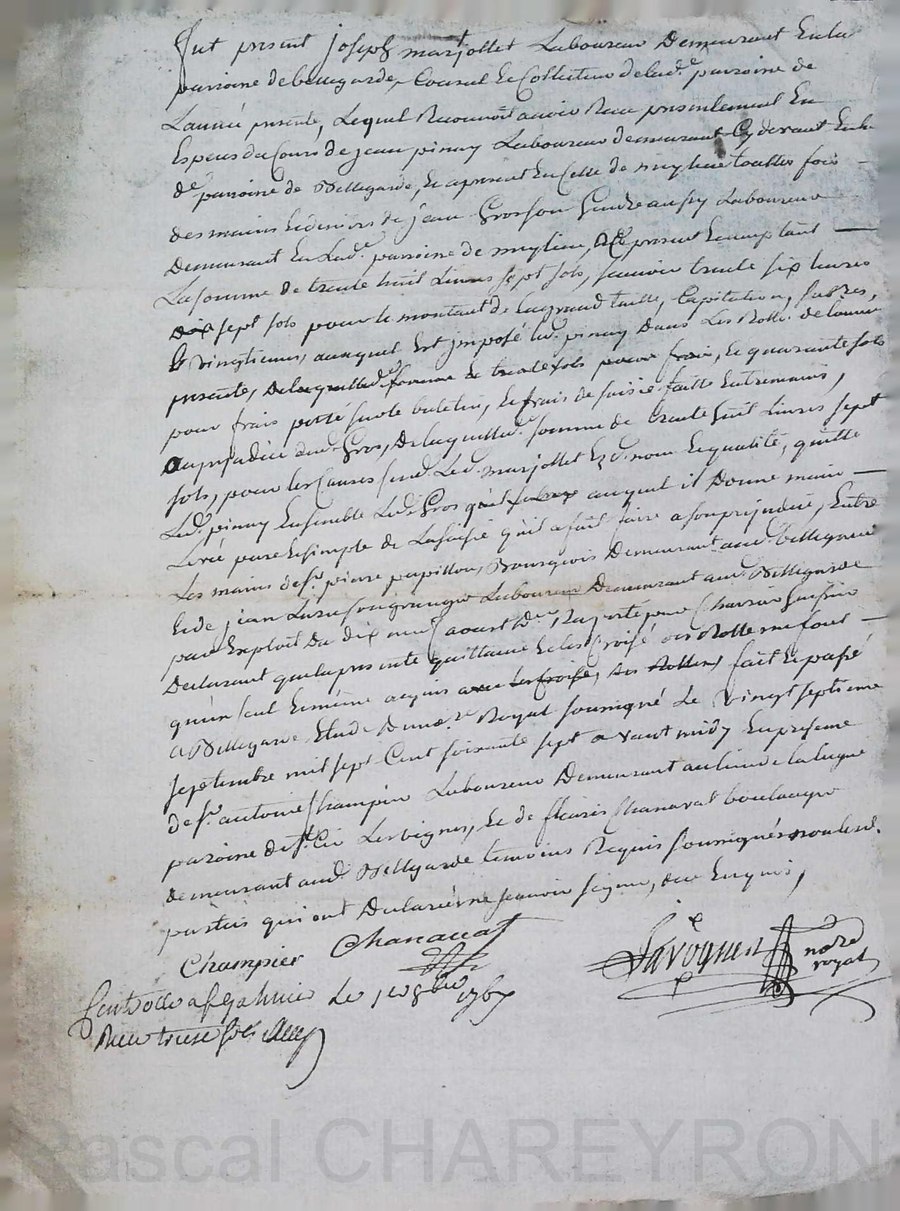 fut present joseph marjollet Laboureur Demeurant En la
parroine de bellegarde, Consul Et Collecteur de lad.e parroine de
Lannée presente, Lequel Reconnoit avoir Receu presentement En
Especes du Cours de jean pinay Laboureur demeurant Cy devant En la
d.e parroine de Bellegarde, Et apresent En Celle de meylieu touttes fois
des mains Et deniers de jean Gros son Gendre aussy Laboureur
Demeurant En Lad.e parroine de meylieu, present Et acceptant
La somme de trente huit Livres sept sols, scavoir trente six livres
sept sols pour le montant de la grand taille, Capitation, subres,
Et vingtiemes, auxquel Est jmposé led. pinay Dans Les Rolle de lannée
presente, de laquelle d.e somme Et trente sols pour frais, Et quarante sols
pour frais porté sur le buletin, Et frais de saisie faitte Entremains,
au prejudice dud. Gros, De laquelle d. somme de trente huit Livres sept
sols, pour les Causes susd. Led. marjollet Esd. nom Et qualité, quitte
Led. pinay Ensemble Led. Gros auquel il Donne main
Levée pure Et simple de La saisie quil a fait faire a son prejudice, Entre
Les mains de s.r pierre papillon, Bourgeois Demeurant aud. bellegarde
Et de jean Laboureur Demeurant aud. Bellegarde
par Exploit du dix aoust D.er Raporté par Charron huissier
Declarant que la presente quittance Et les Croisé des Rolle ne font
qu'un seul Et même acquis avec les Croisé, des Rolles, fait Et passé
a Bellegarde Etude du no.re Royal soussigné Le vingt septieme
septembre mil sept Cent soixante sept avant midy En presence
de s.r antoine Champier Laboureur Demeurant au lieu de la
paroine de s.t Cir Les vignes, Et de fleuris Chanavat boulanger
demeurant aud. Bellegarde temoins Requis soussignés non les d.
parties qui ont Declaré ne scavoir signer, de ce Enquis,
Champier Chanavat
no.re royal
Controllé a s.t Galmier Le 1er 8bre 1767
Receu treise sols
Pascal CHAREYRON